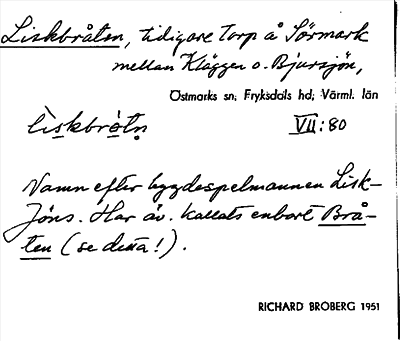 Liskbråten, tidigare torp å Sörmark
mellan Kläggen o. Bjursjön,
Östmarks sn; Fryksdals hd; Värml. län
lìskbrò̀tn̥ VII:80
Namn efter bygdespelmannen Lisk-
Jöns. Har äv. kallats enbart Brå-
ten (se detta!).
RICHARD BROBERG 1951